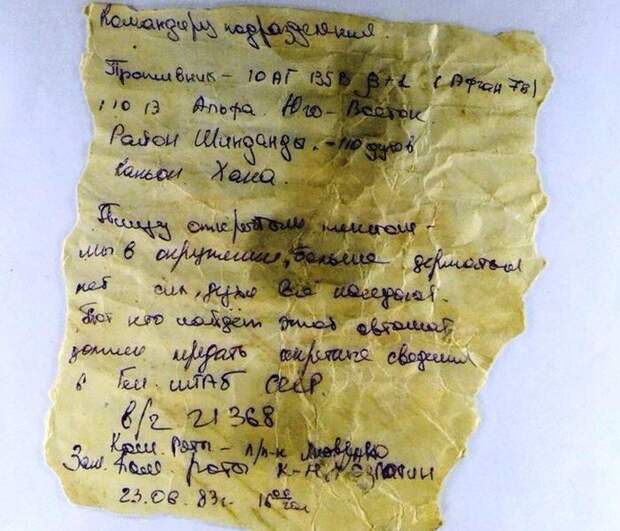 Командиру подразделения.
Противник - 10 АГ 135В β+2 (Афган 78)
110 13 Альфа. Юго-Восток
Район Шинданды. - 110 духов
Каньон Хана.
Пишу открытым текстом -
мы в окружении, больше держаться
нет сил, духи все наседают.
Тот кто найдёт этот автомат,
должен передать секретные сведения
в Ген. штаб СССР.
в/г 21368
Ком. Роты - п/п-к
Зам. Ком. роты к-н
23.06.83г. 16 00